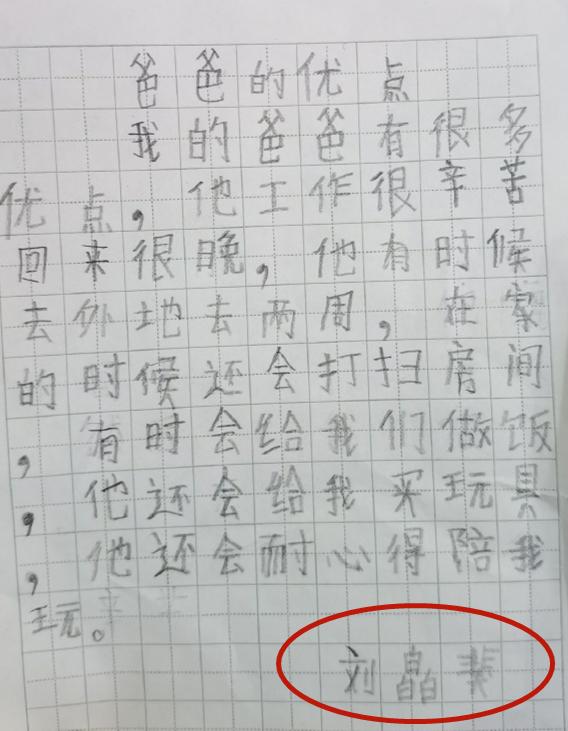 爸爸的优点
我的爸爸有很多
优点，他工作很辛苦
回来很晚，他有时候
去外地去两周，在家
的时候还会打扫房间
，有时会给我们做饭
，他还会给我买玩具
，他还会耐心得陪我
玩。
刘皛